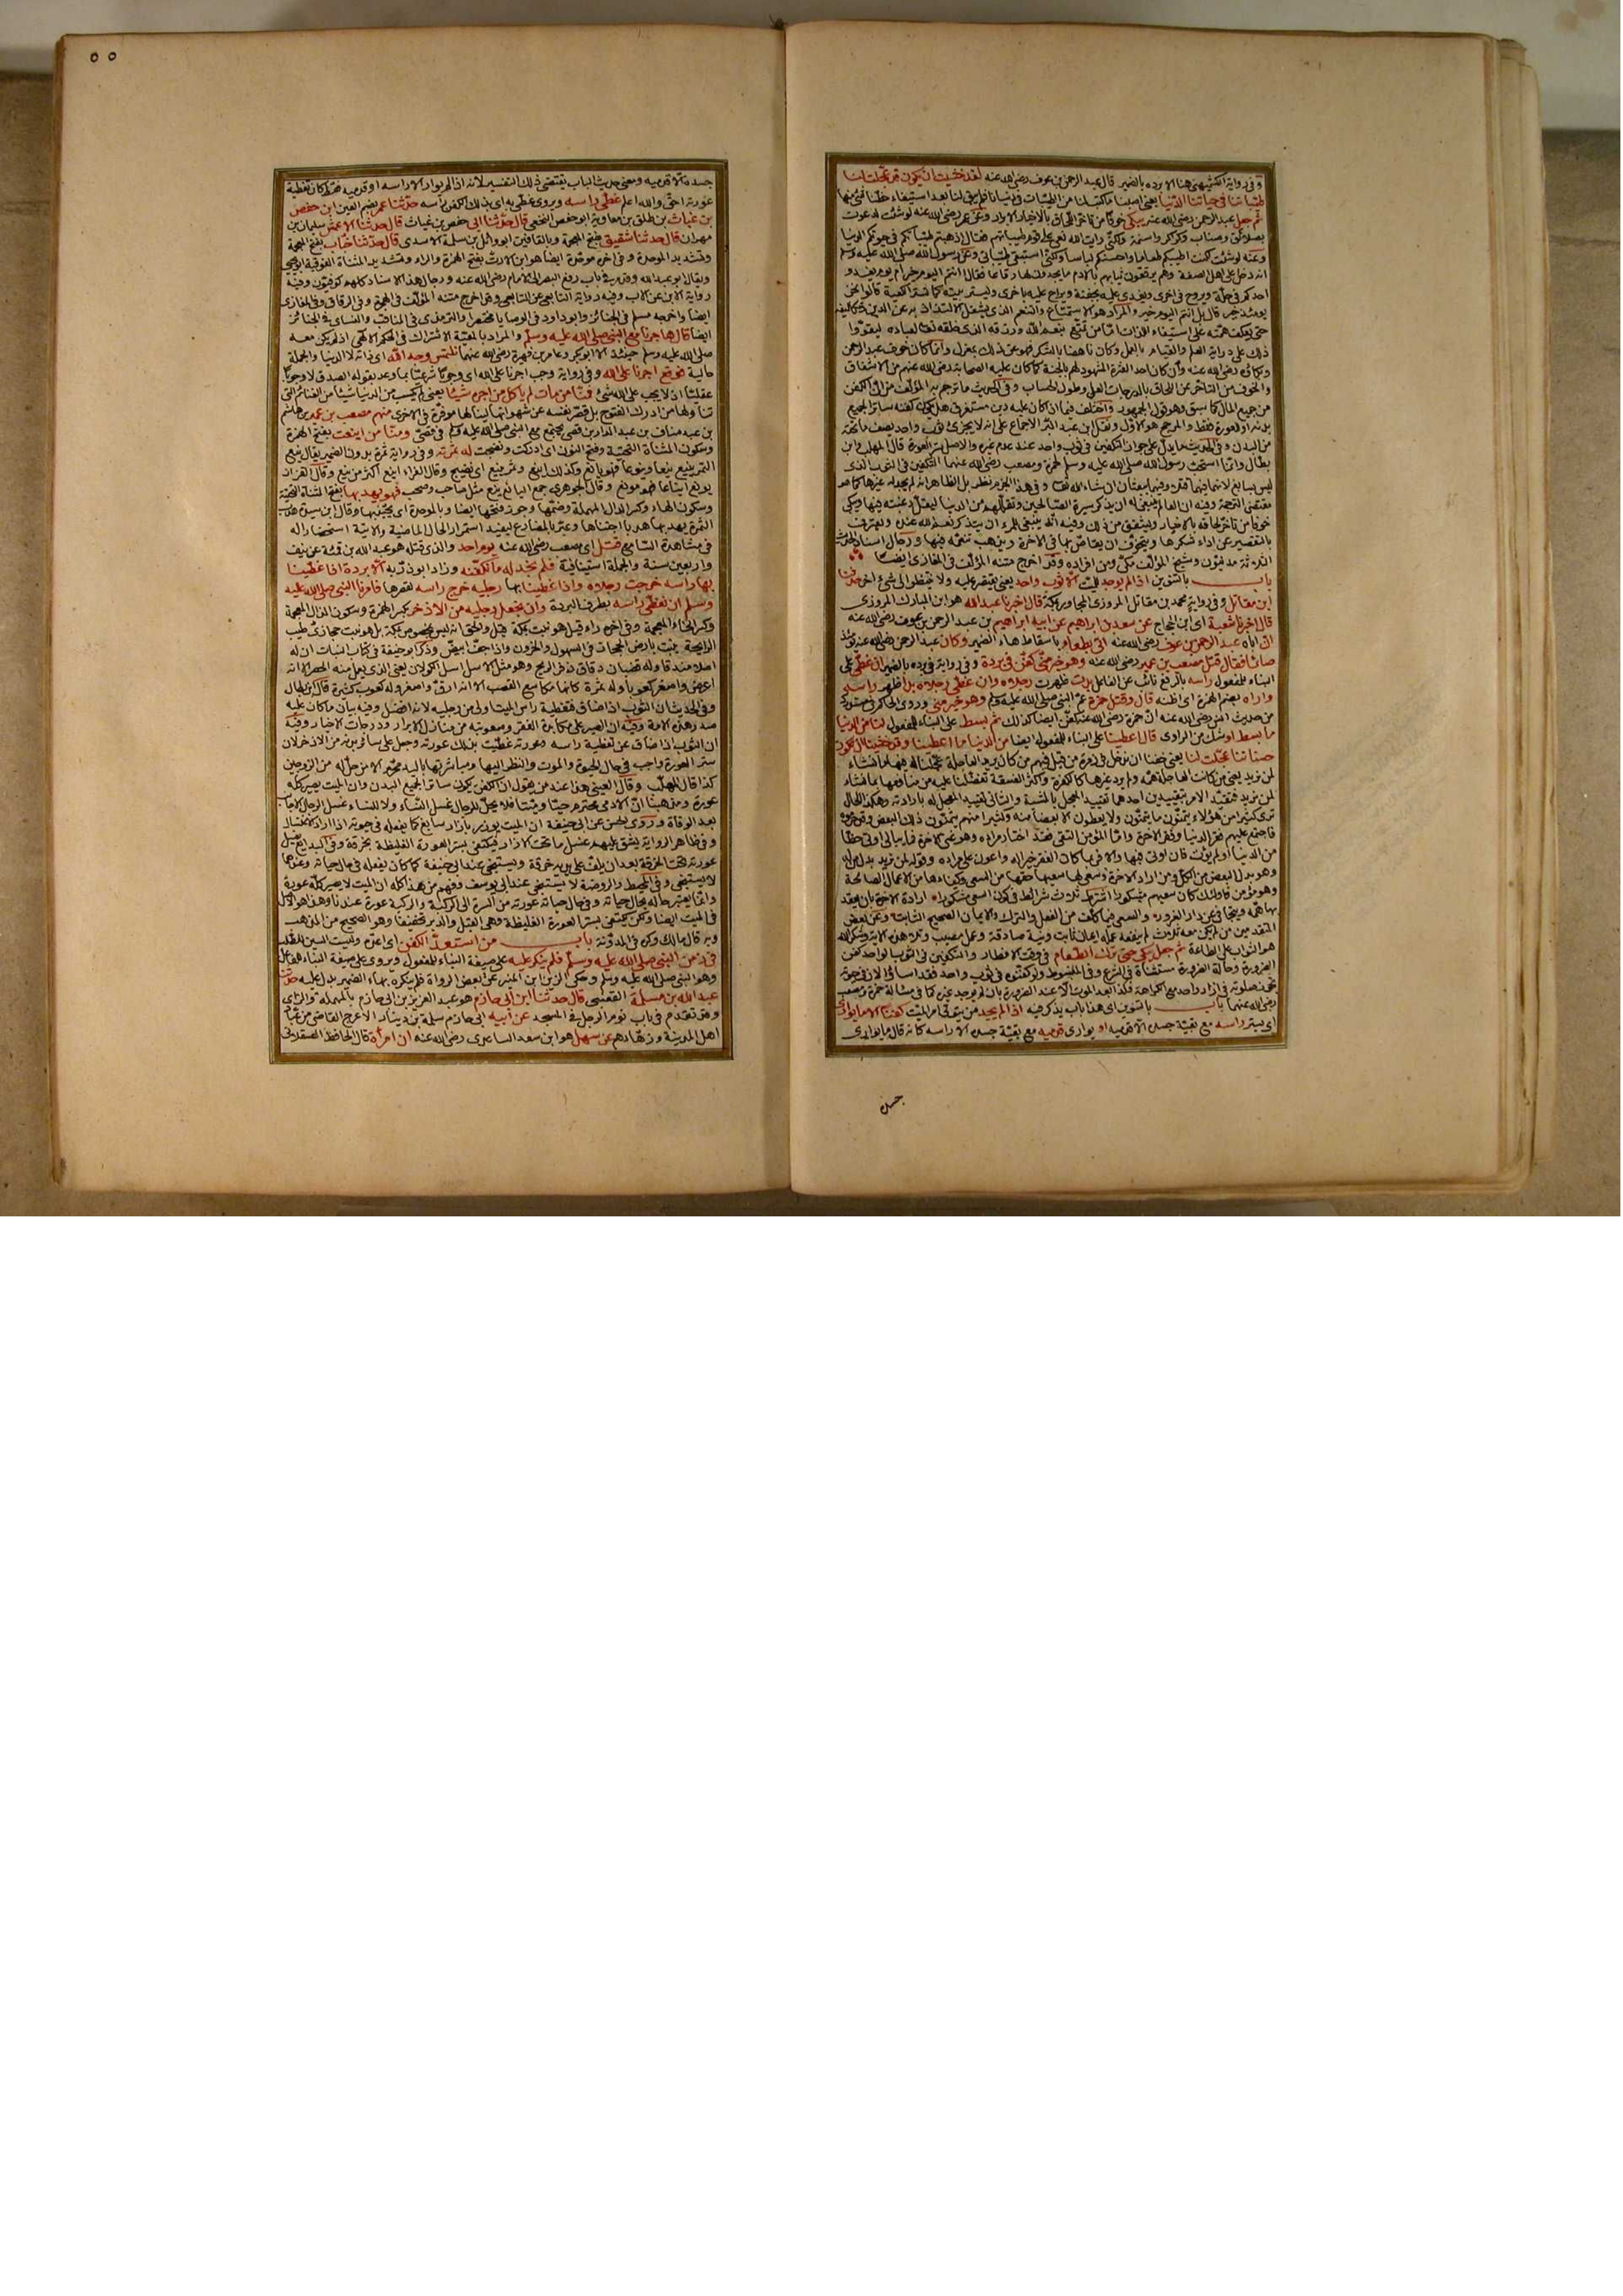 وفي رواية الكشميهني هنا الا برده بالضمير قال عبد الرحمن بن عوف رضي الله عنه لقد خشيت ان يكون قد عجلت لنا
طيباتنا في حياتنا الدنيا يعني اصبنا ما كتب لنا من الطيبات في دنيانا فلم يبق لنا بعد استيفاء حظنا شئ منها
ثم جعل عبد الرحمن رضي الله عنه يبكي خوفا من تأخر اللحاق بالاخيار الابرار وعن عمر رضي الله عنه لو شئت لدعوت
بصلائق وصناب وكراكر واسنمة ولكني رايت الله نعى على قوم طيباتهم فقال اذهبتم طيباتكم في حيوتكم الدنيا
وعنه لو شئت كنت اطيبكم طعاما واحسنكم لباسا ولكني استبقي طيباتي وعن رسول الله صلى الله عليه وسلم
انه دخل على اهل الصفة وهم يرقعون ثيابهم بالادم ما يجدون لها رقاعا فقال انتم اليوم خير ام يوم يغدو
احدكم في حلة ويروح في اخرى ويغدى عليه بجفنة ويراح عليه باخرى ويستر بيته كما تستر الكعبة قالوا نحن
يومئذ خير قال بل انتم اليوم خير والمراد هو الاستمتاع والتنعم الذي يشغل الالتذاذ به عن الدين وتكاليفه
حتى يعكف همته على استيفاء اللذات اما من تمتع بنعم الله ورزقه الذي خلقه تعالى لعباده ليتقووا
ذلك على دراية العلم والقيام بالعمل وكان ناهضا بالشكر فهو عن ذلك بمعزل وانما كان خوف عبد الرحمن
وبكائه رضي الله عنه وان كان احد العشرة المشهود لهم بالجنة كما كان عليه الصحابة رضي الله عنهم من الاشفاق
والخوف من التأخر عن اللحاق بالدرجات العلى وطول الحساب وفي الحديث ما ترجم به المؤلف من ان الكفن
من جميع المال كما سبق وهو قول الجمهور واختلف فيما اذا كان عليه دين مستغرق هل يكون كفنه ساترا لجميع
بدنه او لعورة فقط والمرجح هو الاول ونقل ابن عبد البر الاجماع على انه لا يجزئ ثوب واحد يصف ما تحته
من البدن وفي الحديث ما يدل على جواز التكفين في ثوب واحد عند عدم غيره والاصل ستر العورة قال المهلب وابن
بطال وانما استحب رسول الله صلى الله عليه وسلم لحمزة ومصعب رضي الله عنهما التكفين في الثوب الذي
ليس بسابغ لانهما فيها قتلا وفيها يبعثان ان شاء الله تعالى وفي هذا الجزم نظر بل الظاهر انه لم يجد له غيرها كما هو
مقتضى الترجمة وفيه ان العالم ينبغي له ان يذكر سيرة الصالحين وتقللهم من الدنيا ليقل رغبته فيها ويبكي
خوفا من تأخر لحاقه بالاخيار ويشفق من ذلك وفيه انه ينبغي للمرء ان يتذكر نعم الله عنده ويعترف
بالتقصير عن اداء شكرها ويتخوف ان يقاص بها في الاخرة ويذهب تنعمه فيها ورجال اسناد الحديث
الثلاثة مدنيون وشيخ المؤلف مكي ومن افراده وقد اخرج متنه المؤلف في المغازي ايضا
باب بالتنوين اذا لم يوجد للميت الا ثوب واحد يعني يقتصر عليه ولا ينتظر الى شئ اخر حدثنا
ابن مقاتل وفي رواية محمد بن مقاتل المروزي المجاور بمكة قال اخبرنا عبد الله هو ابن المبارك المروزي
قال اخبرنا شعبة اي ابن الحجاج عن سعد بن ابراهيم عن ابيه ابراهيم بن عبد الرحمن بن عوف رضي الله عنه
ان اباه عبد الرحمن بن عوف رضي الله عنه اتي بطعام باسقاط هاء الضمير وكان عبد الرحمن رضي الله عنه يومئذ
صائما فقال قتل مصعب بن عمير رضي الله عنه وهو خير مني كفن في بردة وفي رواية في برده بالضمير ان غطي على
البناء للمفعول راسه بالرفع نائب عن الفاعل بدت ظهرت رجلاه وان غطي رجلاه بدا ظهر راسه
واراه بضم الهمزة اي اظنه قال وقتل حمزة عم النبي صلى الله عليه وسلم وهو خير مني وروى الحاكم في مستدركه
من حديث انس رضي الله عنه ان حمزة رضي الله عنه كفن ايضا كذلك ثم بسط على البناء للمفعول لنا من الدنيا
ما بسط او شك من الراوي قال اعطينا على البناء للمفعول ايضا من الدنيا ما اعطينا وقد خشينا ان تكون
حسناتنا عجلت لنا يعني خفنا ان ندخل في زمرة من قيل فيهم من كان يريد العاجلة عجلنا له فيها ما نشاء
لمن نريد يعني من كانت العاجلة همه ولم يرد غيرها كالكفرة واكثر الفسقة تفضلنا عليه من منافعها بما نشاء
لمن نريد فقيد الامر بتقييدين احدهما تقييد المعجل بالمشية والثاني تقييد المعجل له بارادته وهكذا الحال
ترى كثيرا من هؤلاء يتمنون ما يتمنون ولا يعطون الا بعضا منه وكثيرا منهم يتمنون ذلك البعض وقد حرموه
فاجتمع عليهم فقر الدنيا وفقر الاخرة واما المؤمن التقي فقد اختار مراده وهو غنى الاخرة فما يبالي اوتي حظا
من الدنيا او لم يؤت فان اوتي فيها والا فربما كان الفقر خيرا له واعون على مراده وقوله لمن نريد بدل من له
وهو بدل البعض من الكل ومن اراد الاخرة وسعى لها سعيها حقها من السعي وكفاءها من الاعمال الصالحة
وهو مؤمن فاولئك كان سعيهم مشكورا اشترط ثلاث شرائط في كون السعي مشكورا ارادة الاخرة بان يعقد
بها همه ويتجافى عن دار الغرور والسعي فيما كلف من الفعل والترك والايمان الصحيح الثابت وعن بعض
المتقدمين من لم يكن معه ثلاث لم ينفعه عمله ايمان ثابت ونية صادقة وعمل مصيب وتلا هذه الاية وشكر الله
هو الثواب على الطاعة ثم جعل يبكي حتى ترك الطعام في وقت الافطار والتكفين في الثوب الواحد كفن
الضرورة وحالة الضرورة مستثناة في الشرع وفي المبسوط ولو كفنوه في ثوب واحد فقد اساؤا لان في حيوته
تجوز صلوته في ازار واحد مع الكراهة فكذا بعد الموت الا عند الضرورة بان لم يوجد غيره كما في مسالة حمزة ومصعب
رضي الله عنهما باب بالتنوين اي هذا باب يذكر فيه اذا لم يجد من يتولى امر الميت كفنا الا ما يواري
اي يستر راسه مع بقية جسده الا قدميه او يواري قدميه مع بقية جسده الا راسه كانه قال ما يواري
جسده
٥٥
جسده الا قدميه ومعنى حديث الباب يقتضي ذلك التفسير لانه اذا لم يوار الا راسه او قدميه فقط كان تغطية
عورته احق والله اعلم غطى راسه ويروى غطي به اي بذلك الكفن راسه حدثنا عمر بضم العين ابن حفص
بن غياث بن طلق بن معاوية ابو حفص النخعي قال حدثنا ابي حفص بن غياث قال حدثنا الاعمش سليمان بن
مهران قال حدثنا شقيق بفتح المعجمة وبالقافين ابو وائل بن سلمة الاسدي قال حدثنا خباب بفتح المعجمة
وتشديد الموحدة وفي اخره موحدة ايضا هو ابن الارت بفتح الهمزة والراء وتشديد المثناة الفوقية ابو يحيى
ويقال ابو عبد الله وقد مر في باب رفع البصر الى الامام رضي الله عنه ورجال هذا الاسناد كلهم كوفيون وفيه
رواية الابن عن الاب وفيه رواية التابعي عن التابعي وقد اخرج متنه المؤلف في الهجرة وفي الرقاق وفي المغازي
ايضا واخرجه مسلم في الجنائز وابو داود في الوصايا مختصرا والترمذي في المناقب والنسائي في الجنائز
ايضا قال هاجرنا مع النبي صلى الله عليه وسلم والمراد بالمعية الاشتراك في حكم الهجرة اذ لم يكن معه
صلى الله عليه وسلم حينئذ الا ابو بكر وعامر بن فهيرة رضي الله عنهما نلتمس وجه الله اي ذاته لا الدنيا والجملة
حالية فوقع اجرنا على الله وفي رواية وجب اجرنا على الله اي وجوبا شرعيا بما وعد بقوله الصدق لا وجوبا
عقليا اذ لا يجب على الله شئ فمنا من مات لم ياكل من اجره شيئا يعني لم يكسب من الدنيا شيئا من الغنائم التي
تناولها من ادرك الفتوح بل قصر نفسه عن شهواتها لينالها موفرة في الاخرى منهم مصعب بن عمير بن هاشم
بن عبد مناف بن عبد الدار بن قصي يجتمع مع النبي صلى الله عليه وسلم في قصي ومنا من اينعت بفتح الهمزة
وسكون المثناة التحتية وفتح النون اي ادركت ونضجت له ثمرته وفي رواية ثمرة بدون الضمير يقال ينع
الثمر يينع ينعا وينوعا فهو يانع وكذلك اينع وثمر ينيع اي نضيج وقال الفراء اينع اكثر من ينع وقال القزاز
يونع ايناعا فهو مونع وقال الجوهري جمع اليانع ينع مثل صاحب وصحب فهو يهدبها بفتح المثناة التحتية
وسكون الهاء وكسر الدال المهملة وضمها وجوز فتحها ايضا وبالموحدة اي يجتنيها وقال ابن سيده هدب
الثمرة يهدبها هدبا اجتناها وعبر بالمضارع ليفيد استمرار الحال الماضية والاتية استحضارا له
في مشاهدة السامع قتل اي مصعب رضي الله عنه يوم احد والذي قتله هو عبد الله بن قمئة عن نيف
واربعين سنة والجملة استينافية فلم نجد له ما نكفنه وزاد ابو ذر به الا بردة اذا غطينا
بها راسه خرجت رجلاه واذا غطينا بها رجليه خرج راسه لقصرها فامرنا النبي صلى الله عليه
وسلم ان نغطي راسه بطرف البردة وان نجعل رجليه من الاذخر بكسر الهمزة وسكون الذال المعجمة
وكسر الخاء المعجمة وفي اخره راء قيل هو نبت بمكة قيل والحق انه ليس بمخصوص بمكة بل هو نبت حجازي طيب
الرايحة ينبت بارض الحجاز في السهول والحزون واذا جف ابيض وذكر ابو حنيفة في كتاب النبات ان له
اصلا مندفنا وله قضبان دقاق ذفر الريح وهو مثل الاسل اسل الكولان يعني الذي يعمل منه الحصر الا انه
اعرض واصغر كعوبا وله ثمرة كانها مكاسح القصب الا انه ارق واصغر وله كعوب كثيرة قال ابن بطال
وفي الحديث ان الثوب اذا ضاق فتغطية راس الميت اولى من رجليه لانه افضل وفيه بيان ما كان عليه
صدر هذه الامة وفيه ان الصبر على مكابدة الفقر وصعوبته من منازل الابرار ودرجات الاخيار وفيه
ان الثوب اذا ضاق عن تغطية راسه وعورته غطيت بذلك عورته وجعل على سائر بدنه من الاذخر لان
ستر العورة واجب في حال الحيوة والموت والنظر اليها ومباشرتها باليد محرم الا من حل له من الزوجين
كذا قال المهلب وقال العيني هذا عند من يقول ان الكفن يكون ساترا لجميع البدن وان الميت يصير كله
عورة ومذهبنا ان الادمي محترم حيا وميتا فلا يحل للرجال غسل النساء ولا للنساء غسل الرجال الاجانب
بعد الوفاة وروى الحسن عن ابي حنيفة ان الميت يوزر بازار سابغ كما يفعله في حيوته اذا اراد الاغتسال
وفي ظاهر الرواية يشق عليهم غسل ما تحت الازار فيكتفى بستر العورة الغليظة بخرقة وفي البدايع يغسل
عورته تحت الخرقة بعد ان يلف على يديه خرقة ويستنجى عند ابي حنيفة كما كان يفعله في حال حياته وعندهما
لا يستنجى وفي المحيط والروضة لا يستنجى عند ابي يوسف وفهم من هذا كله ان الميت لا يصير كله عورة
وانما يعتبر حاله بحال حياته وفي حال حياته عورته من السرة الى الركبة والركبة عورة عندنا وهذا هو الاصل
في الميت ايضا ولكن يكتفى بستر العورة الغليظة وهي القبل والدبر تخفيفا وهو الصحيح من المذهب
وبه قال مالك ذكره في المدونة باب من استعد الكفن اي اعده وليست السين للطلب
في زمن النبي صلى الله عليه وسلم فلم ينكر عليه على صيغة البناء للمفعول ويروى على صيغة البناء للفاعل
وهو النبي صلى الله عليه وسلم وحكى الزين ابن المنير عن بعض الرواة فلم ينكره بهاء الضمير بدل عليه حدثنا
عبد الله بن مسلمة القعنبي قال حدثنا ابن ابي حازم هو عبد العزيز بن ابي حازم بالمهملة والزاي
وقد تقدم في باب نوم الرجل في المسجد عن ابيه ابي حازم سلمة بن دينار الاعرج القاضي من عباد
اهل المدينة وزهادهم عن سهل هو ابن سعد الساعدي رضي الله عنه ان امرأة قال الحافظ العسقلاني